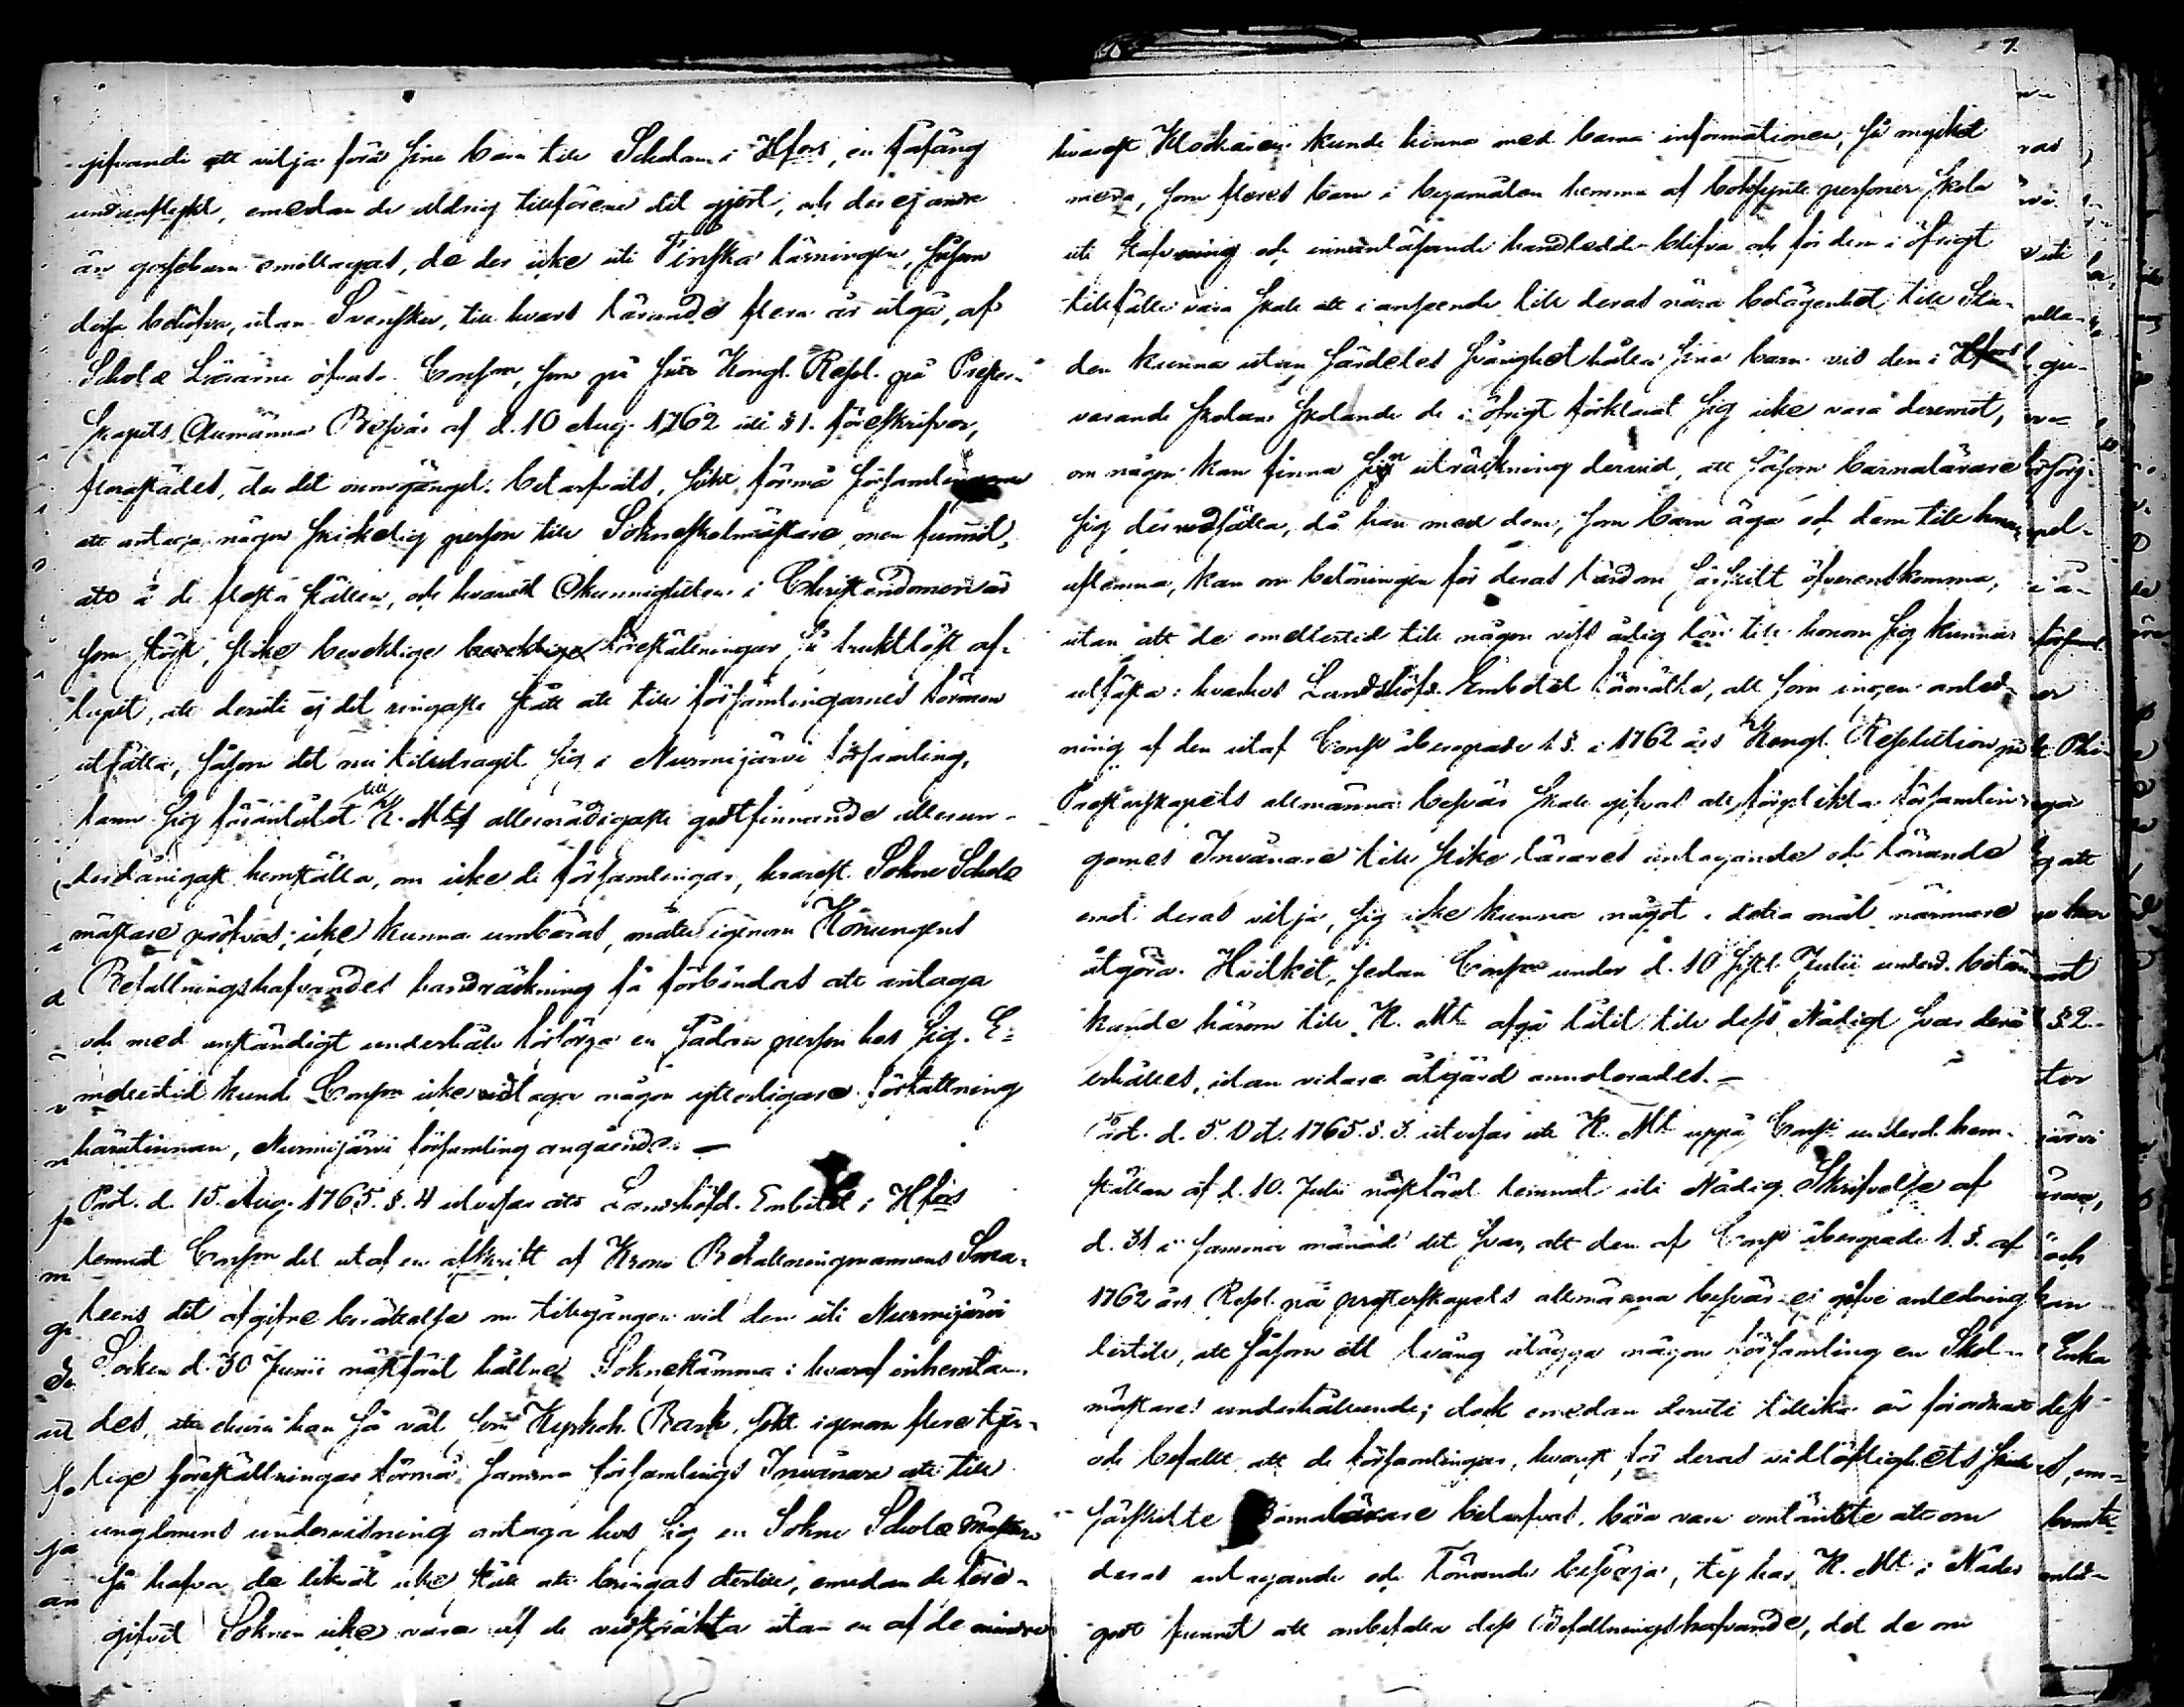 gifvande att vilja föra sine barn till Scholan i Hfors, en fåfäng
undanflykt, emedan de aldrig tillförene det gjort, och der ej andre
än gossebarn emottagas, de der icke uti Finska läsningen, såsom
desse behöfva, utan Svenska, till hvars lärande flera år utgå, af
Schole Lärarne öfvas. Consm, som på Kongl. Resol. på Prester-
skapets Allmänna Besvär af d. 10 Aug. 1762 uti § 1. föreskrifver,
flerastädes, der det oumgängel. betarfvats, sökt förmå församlingarne
att antaga någon skickelig person till Sokneskolmästare, men funnit,
att å de flesta ställen, och hvarest Okunnigheten i Christendomen är
som störst, slike bevekliga föreställningar så fruktlöst af-
lupit, att deruti ej det ringaste stått att till församlingarnes förmon
uträtta, såsom det nu tilldragit sig i Nurmijärvi församling,
fann sig föranlåtet till K. Mts allernådigaste godtfinnande allerun-
derdånigast hemställa, om icke de församlingar, hvarest Sokne Schole
mästare pröfvas icke kunna umbäras, måtte igenom Konungens
Befallningshafvandes handräckning få förbindas att antaga
och med anständigt underhåll försörja en sådan person hos sig. E-
medlertid kunde Consm icke vidtaga någon ytterligare författning
härutinnan, Nurmijärvi församling angående. —
Prot. d. 15. Aug. 1765. §. 4 utvisar att Landshöfd. Embetet i Hfors
lemnat Consm del utaf en afskrift af Krono Befallningsmannens
dit afgifne berättelse om tillgången vid den uti Nurmijärvi
Socken d. 30 Junii nästförut hållne Soknestämma: hvaraf inhemta-
des, att ehuru han så väl som Kyrkoh. Bark, sökt igenom flere tjen-
lige föreställningar förmå samma församlings Invånare att till
ungdomens undervisning antaga hos sig en Sokne Schole Mästare
så hafva de likväl icke stått att bringas dertill, emedan de före-
gifvit Soknen icke vara af de vidsträkta utan en af de mindre
7.
hvarest Klockaren kunde hinna med barna informationen, så mycket
mera, som fleres barn i byamålen hemma af boksynte personer skola
uti stafning och innanläsande handledde blifva och för dem i öfrigt
tillfälle vara skall att i anseende till deras nära belägenhet till Sta-
den kunna utan särdeles svårighet hålla sina barn vid den i Hfors
varande skolan skolande de i öfrigt förklarat sig icke vara deremot,
om någon kan finna sin uträkning dervid, att såsom barnalärare
sig der nedsätta, då han med dem, som barn äga och dem till honom
uplemna, kan om belöningen för deras lärdom särskilt öfverenskomma,
utan att de emedlertid till någon viss årlig lön till honom sig kunna
utfästa: hvarhos Landshöfd. Embetet förmälte, att som ingen anled-
ning af den utaf Consm åberopade 1 §. i 1762 års Kongl. Resolution på
Presterskapets allmänna besvär skall gifvas att förplikta församlin-
garnes Invånare till slike lärares antagande och lönande
emot deras vilja, sig icke kunna något i detta mål närmare
åtgöra. Hvilket, sedan Consm under d. 10 sistl. Julii underd. betän-
kande härom till K. Mt afgå låtit till dess Nådigt svar derå
erhålles, utan vidare åtgärd annoterades. —
Prot. d. 5. Oct. 1765. §. 3. utvisar att K. Mt uppå Consm underd. hem-
ställan af d. 10. Julii nästförut lemnat uti Nådig Skrifvelse af
d. 31 i samma månad det svar, att den af Consm åberopade 1. §. af
1762 års Resol. på presterskapets allmänna besvär ej gifve anledning
dertill, att såsom ett tvång ålägga någon församling en Skol-
mästares underhållande; dock emedan deruti tillika är förordnat
och befallt att de församlingar, hvarest för deras vidlöftighets skull
särskilte Barnalärare betarfvas, böra vara omtänkte att om
deras antagande och lönande besörja, ty har K. Mt i Nåder
godt funnit att anbefalla dess Befallningshafvande, det de om